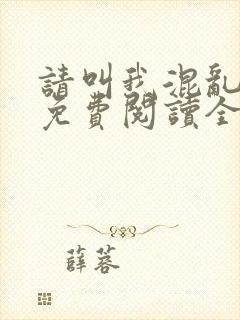 請叫我混亂
免費閱讀全
薛蓉